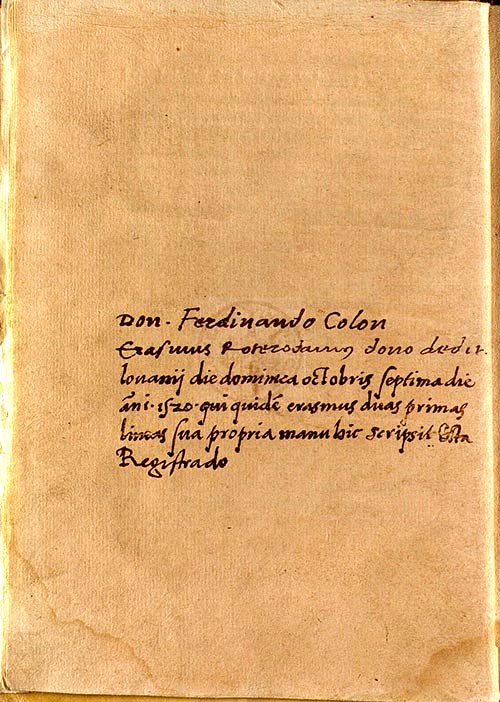 Don · Ferdinando Colon
Erasmus Roterodamus dono dedit.
lovanij die dominica octobris septima die
āni · 1520 · qui quidē erasmus duas primas
lineas sua propria manu hic scripsit Esta
Registrado